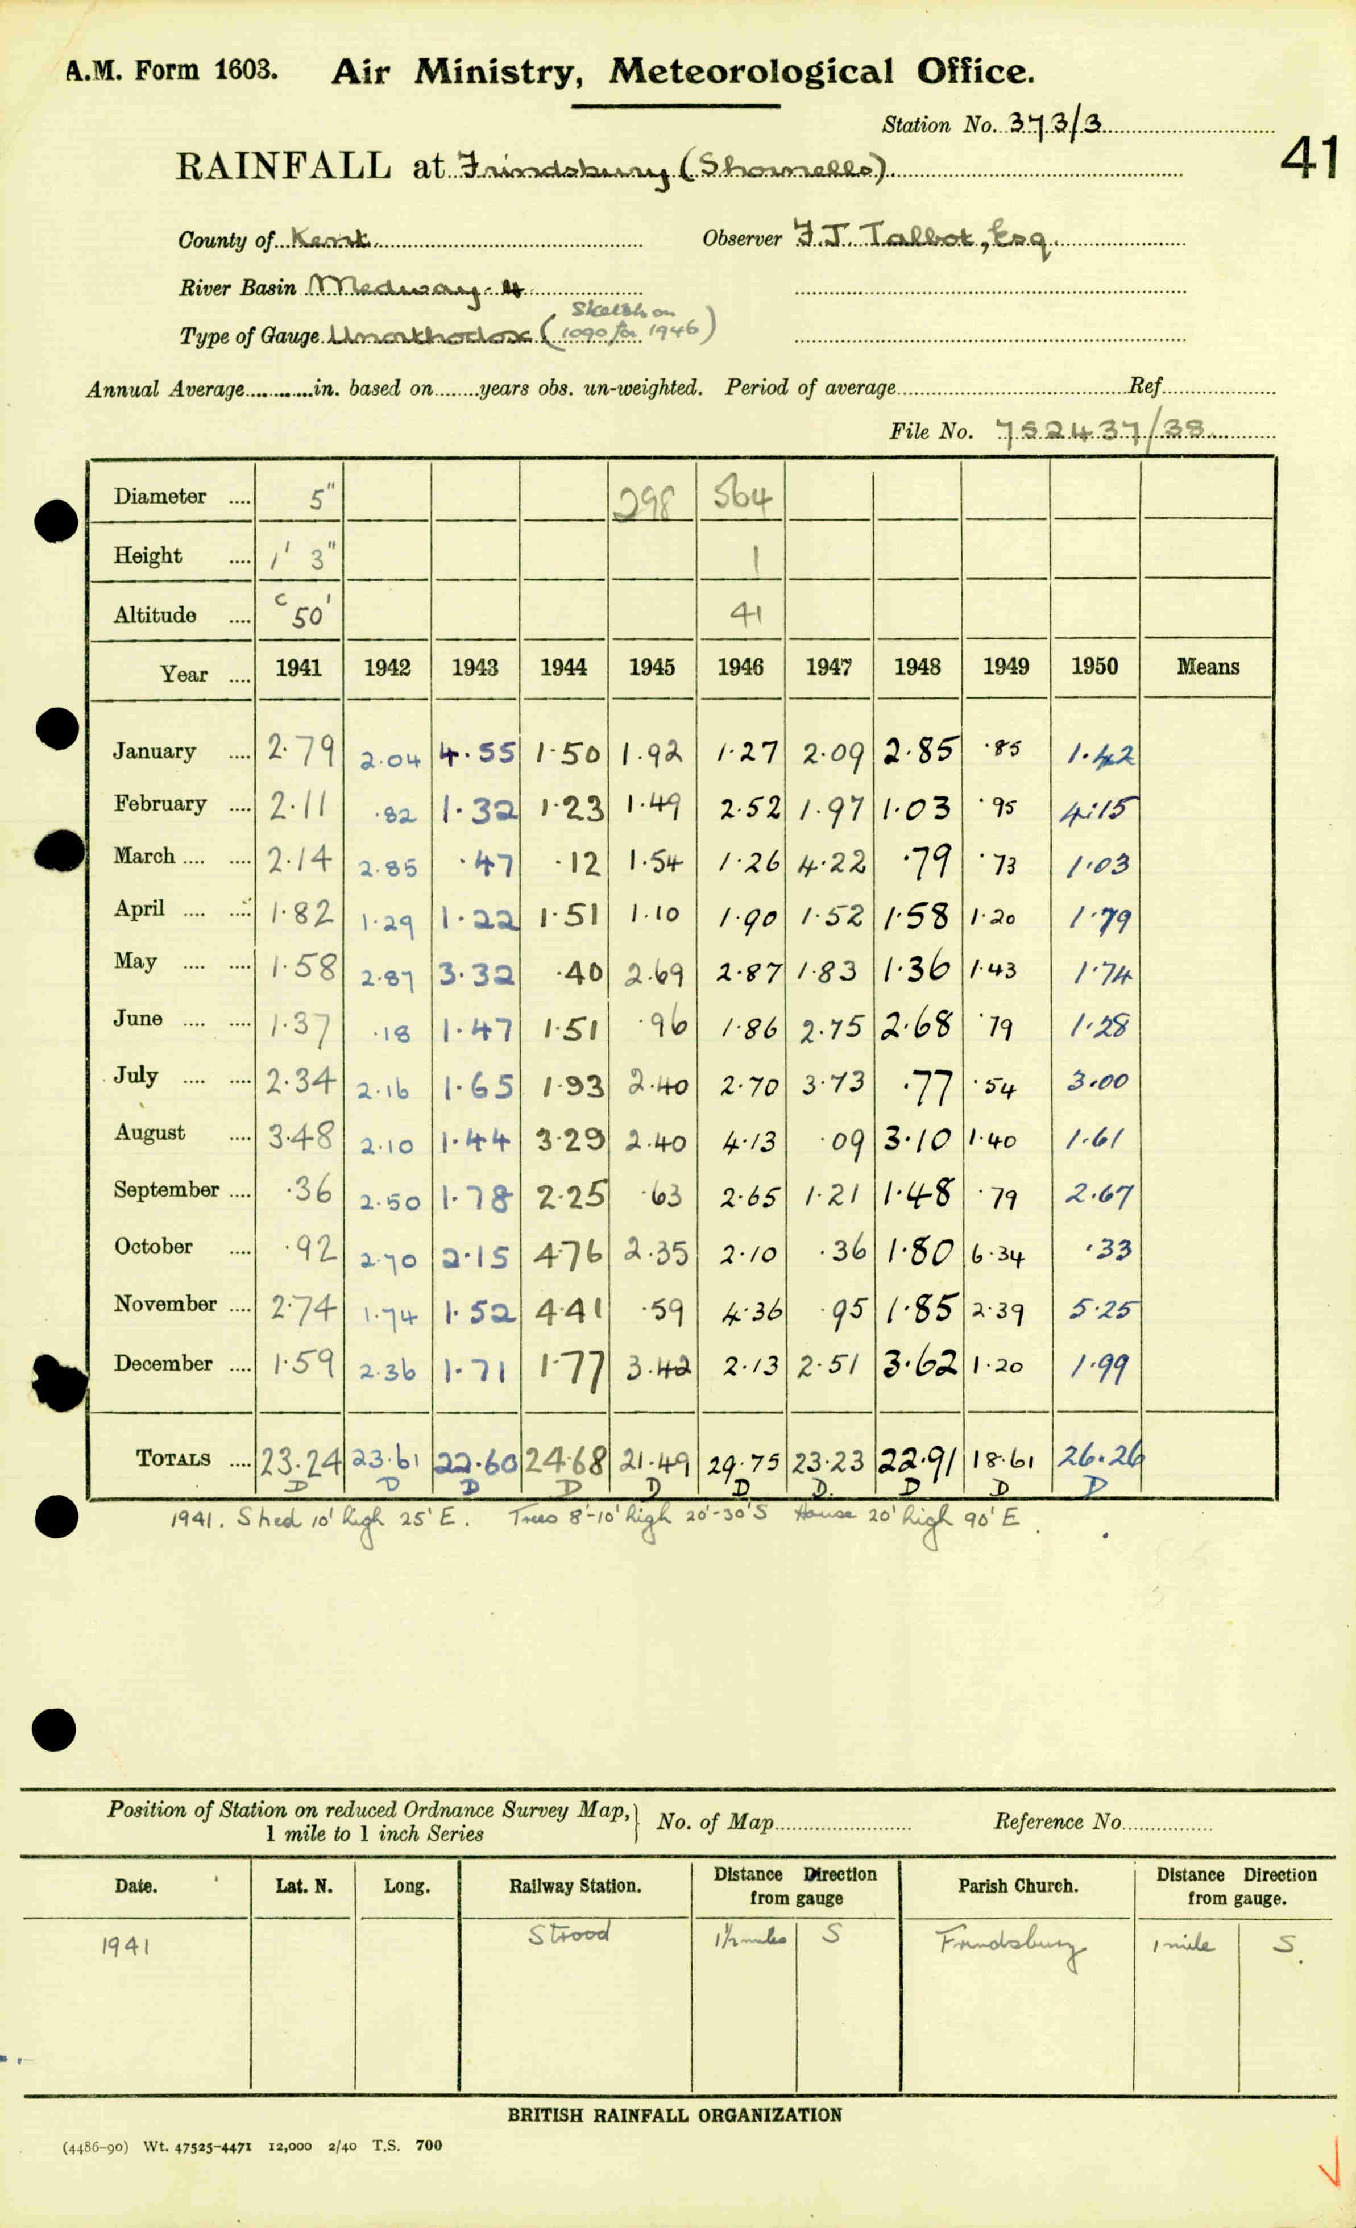 A.M. Form 1603. Air Ministry, Meteorological Office.
Station No. 373/3
41
RAINFALL at Frindsbury (Shornells)
County of Kent Observer F.J. Talbot, Esq.
River Basin Medway. 4
Type of Gauge Unorthodox (Sketch on 1090 for 1946)
Annual Average in. based on years obs. un-weighted. Period of average Ref
File No. 752437/38
Diameter .... 5" 298 564
Height .... 1' 3" 1
Altitude .... c 50' 41
Year .... 1941 1942 1943 1944 1945 1946 1947 1948 1949 1950 Means
January .... 2.79 2.04 4.55 1.50 1.92 1.27 2.09 2.85 .85 1.42
February .... 2.11 .82 1.32 1.23 1.49 2.52 1.97 1.03 .95 4.15
March .... .... 2.14 2.85 .47 .12 1.54 1.26 4.22 .79 .73 1.03
April .... .... 1.82 1.29 1.22 1.51 1.10 1.90 1.52 1.58 1.20 1.79
May .... .... 1.58 2.87 3.32 .40 2.69 2.87 1.83 1.36 1.43 1.74
June .... .... 1.37 .18 1.47 1.51 .96 1.86 2.75 2.68 .79 1.28
July .... .... 2.34 2.16 1.65 1.93 2.40 2.70 3.73 .77 .54 3.00
August .... 3.48 2.10 1.44 3.29 2.40 4.13 .09 3.10 1.40 1.61
September .... .36 2.50 1.78 2.25 .63 2.65 1.21 1.48 .79 2.67
October .... .92 2.70 2.15 4.76 2.35 2.10 .36 1.80 6.34 .33
November .... 2.74 1.74 1.52 4.41 .59 4.36 .95 1.85 2.39 5.25
December .... 1.59 2.36 1.71 1.77 3.42 2.13 2.51 3.62 1.20 1.99
TOTALS .... 23.24 23.61 22.60 24.68 21.49 29.75 23.23 22.91 18.61 26.26
D D D D D D D. D D D
1941. Shed 10' high 25' E. Trees 8'-10' high 20'-30' S House 20' high 90' E.
Position of Station on reduced Ordnance Survey Map, No. of Map Reference No.
1 mile to 1 inch Series
Date. Lat. N. Long. Railway Station. Distance Direction from gauge Parish Church. Distance Direction from gauge.
1941 Strood 1½ miles S Frindsbury 1 mile S.
BRITISH RAINFALL ORGANIZATION
(4486-90) Wt. 47525-4471 12,000 2/40 T.S. 700